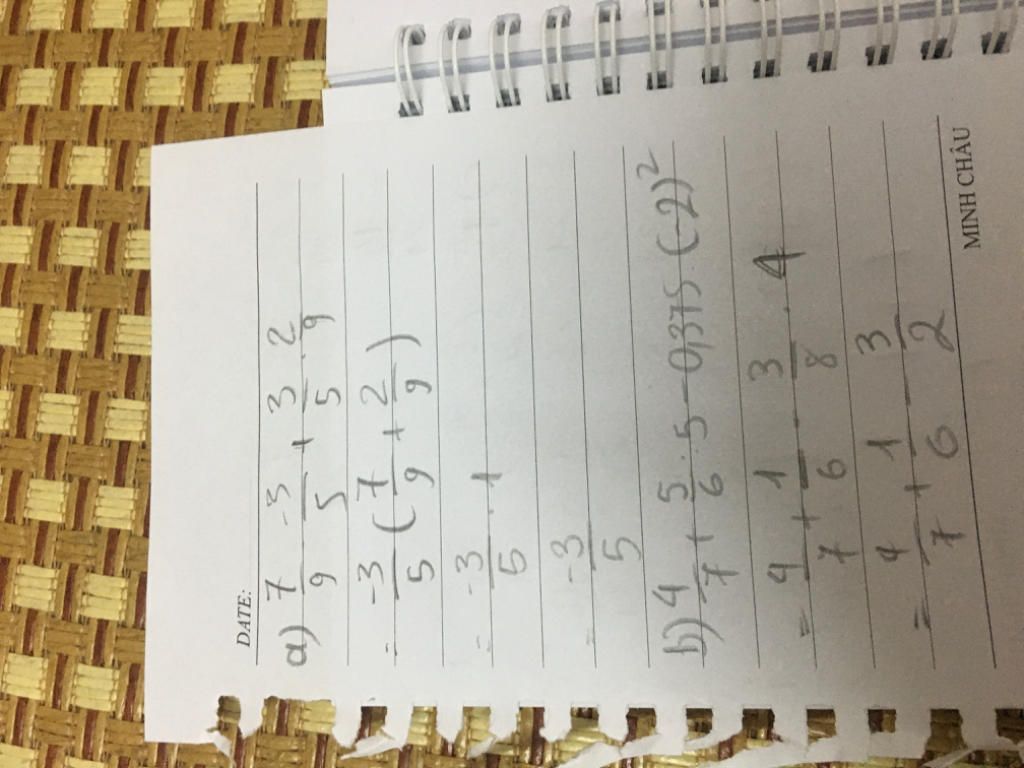 DATE:
a) 7/9 . -3/5 + 3/5 . 2/9
= -3/5 (7/9 + 2/9)
= -3/5 . 1
= -3/5
b) 4/7 + 5/6 : 5 - 0,375 . (-2)²
= 4/7 + 1/6 - 3/8 . 4
= 4/7 + 1/6 - 3/2
MINH CHÂU